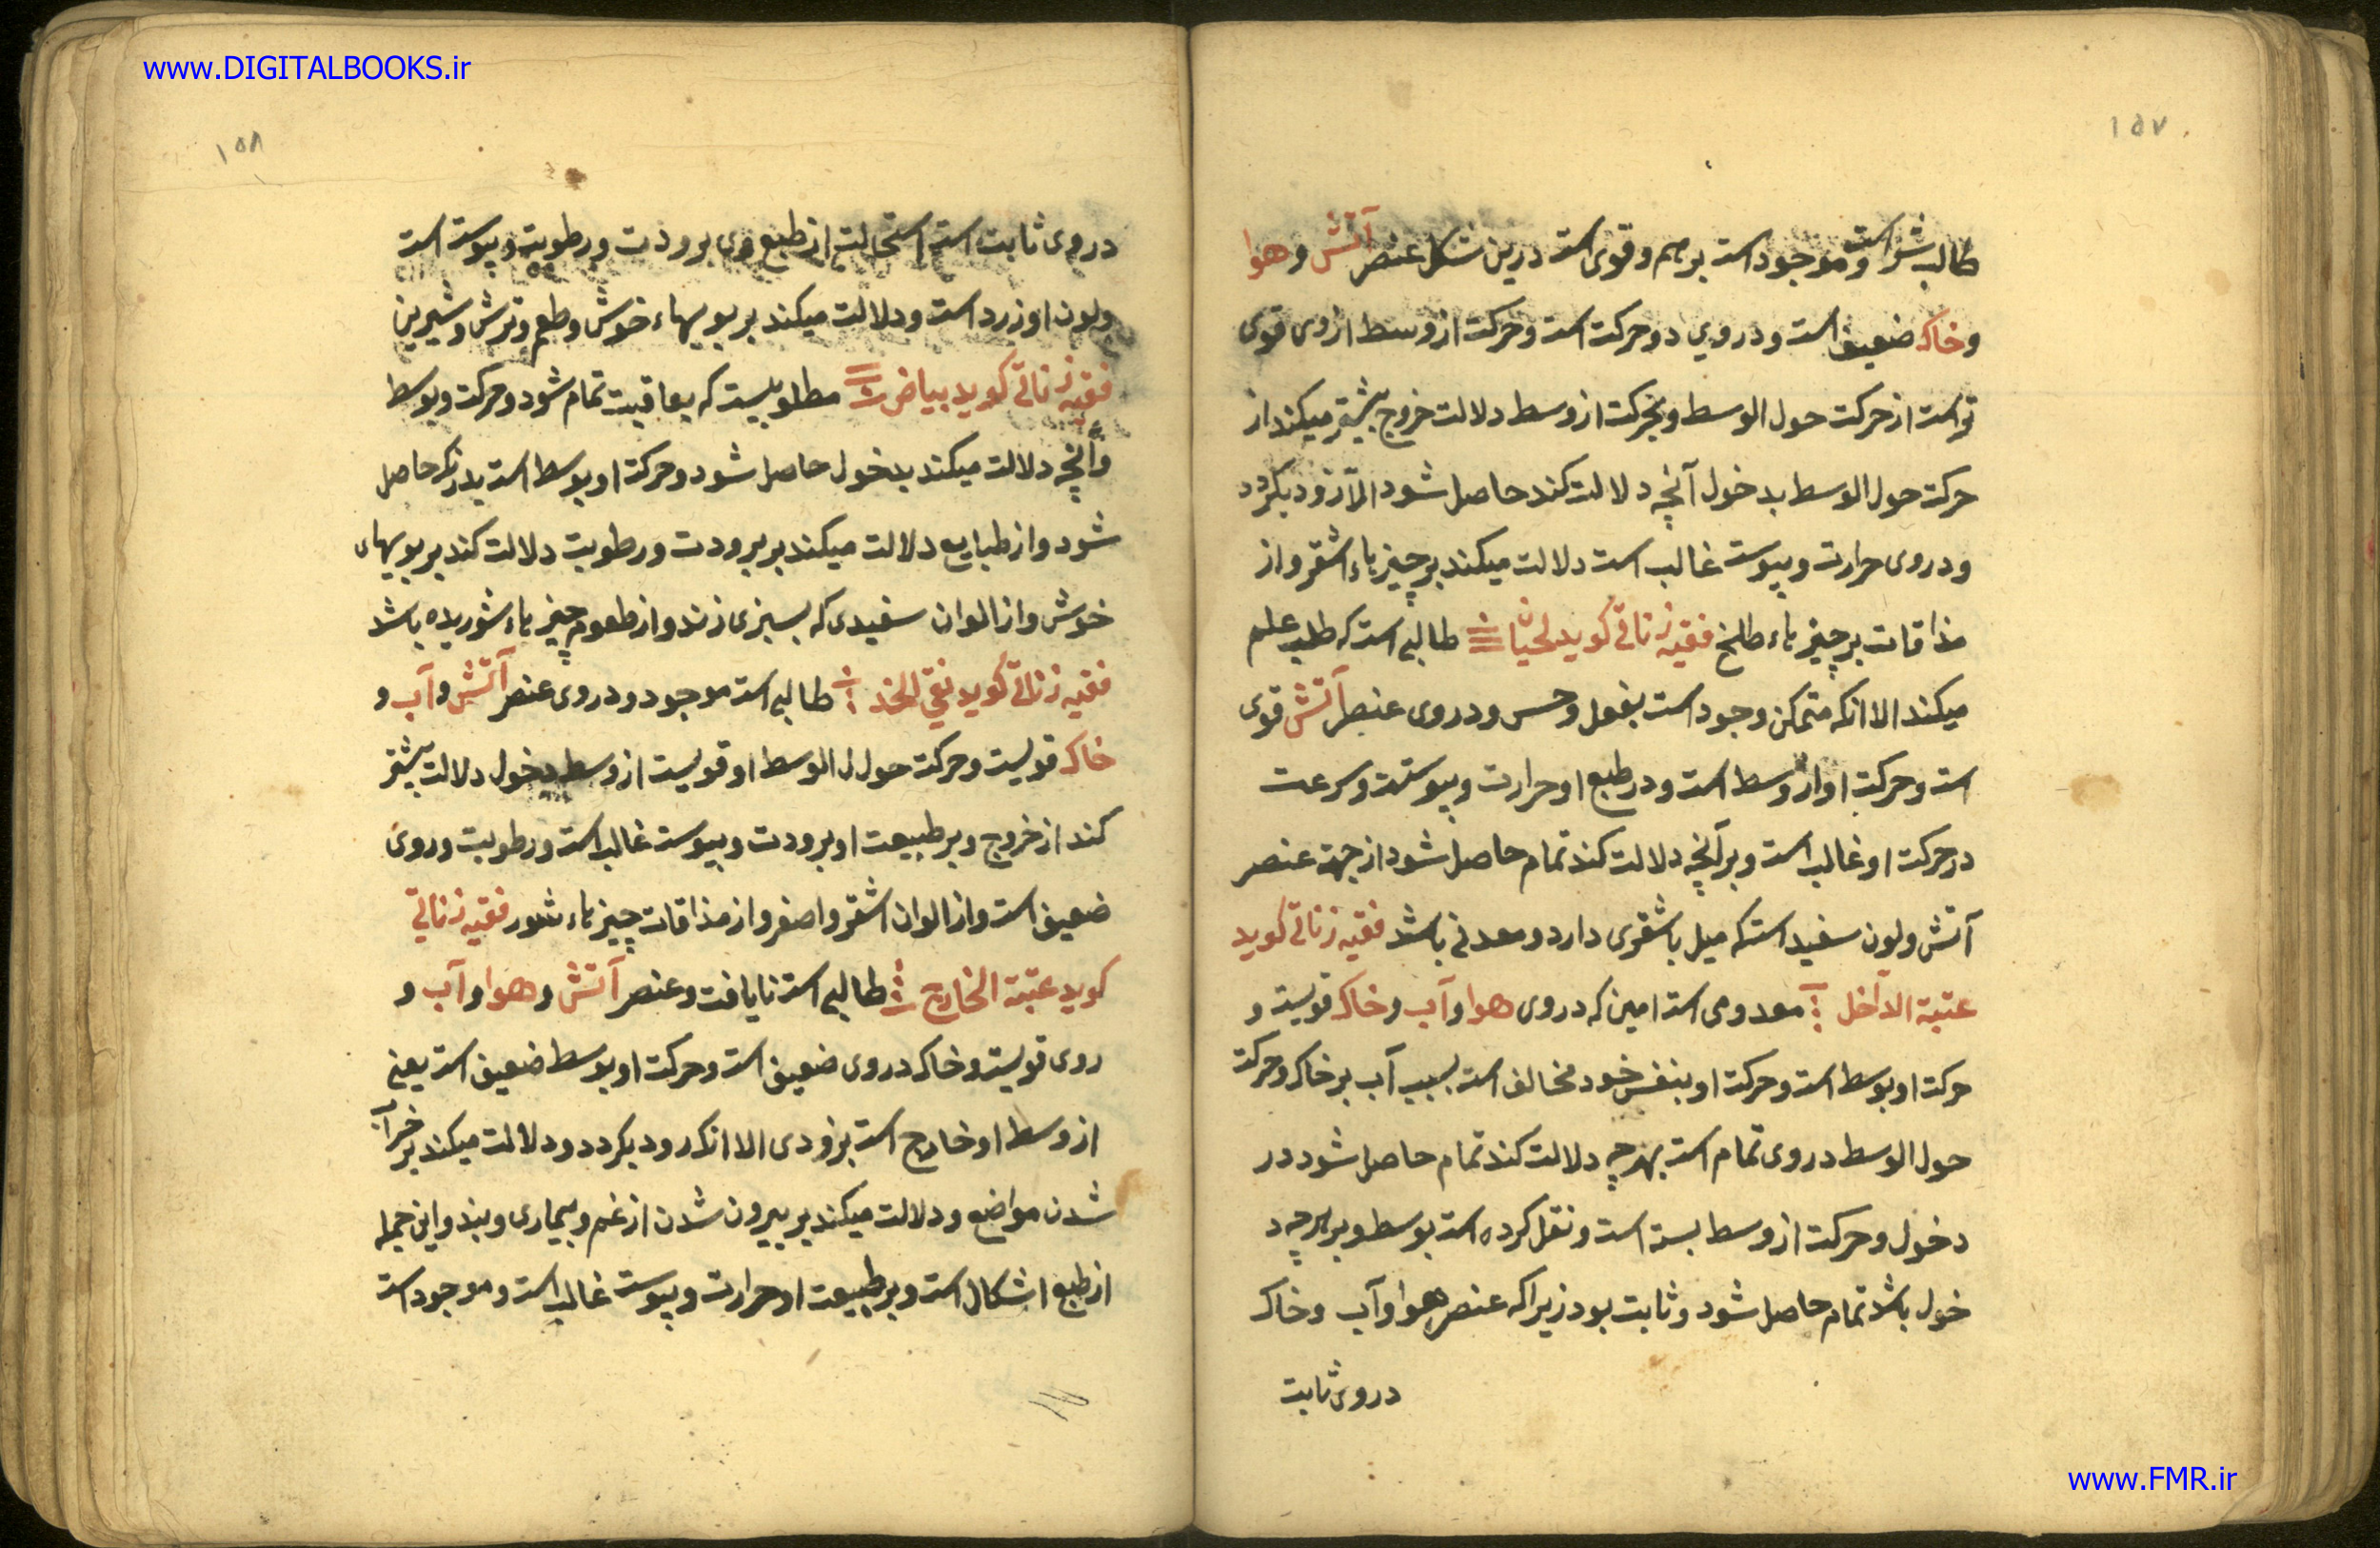 www.DIGITALBOOKS.ir
۱۵۷
طالب شر است و موجود است برهم و قوی است درین شکل عنصر آتش و هوا
و خاک ضعیف است و در وی دو حرکت است و حرکت از وسط از وی قوی
تر است از حرکت حول الوسط و بحرکت از وسط دلالت خروج بیشتر میکند از
حرکت حول الوسط بدخول آنچه دلالت کند حاصل شود الا زود بگردد
و در وی حرارت و یبوست غالب است دلالت میکند بر چیزهاء اشقر و از
مذاقات بر چیزهاء طلخ فقیه زناتی کوید لحیان طالبی است که طلب علم
میکند الا انکه متمکن وجود است بفعل و حس و در وی عنصر آتش قوی
است و حرکت او از وسط است و در طبع او حرارت و یبوست و سرعت
در حرکت او غالب است و بر آنچه دلالت کند تمام حاصل شود از جهت عنصر
آتش و لون سفید است که میل باشقری دارد و معدنی باشد فقیه زناتی کوید
عتبة الداخل معدومی است امین که در وی هوا و آب و خاک قویست و
حرکت او بوسط است و حرکت او بنفس خود مخالف است بسبب آب بر خاک و حرکت
حول الوسط در وی تمام است بهرچه دلالت کند تمام حاصل شود در
دخول و حرکت از وسط بسته است و نقل کرده است بوسط و بر هرچه د
خول باشد تمام حاصل شود و ثابت بود زیرا که عنصر هوا و آب و خاک
در وی ثابت
۱۵۸
در وی ثابت است استحالت از طبع وی برودت و رطوبت و یبوست است
و لون او زرد است و دلالت میکند بر بویهاء خوش و طعم و ترش و شیرین
فقیه زناتی کوید بیاض مطلوبیست که بعاقبت تمام شود و حرکت و بوسط
و آنچه دلالت میکند بدخول حاصل شود و حرکت او بوسط است بدرنک حاصل
شود و از طبایع دلالت میکند بر برودت و رطوبت دلالت کند بر بویهای
خوش و از الوان سفیدی که بسبزی زند و از طعوم چیزهاء شوریده باشد
فقیه زناتی کوید نقی الخد طالبی است موجود و در وی عنصر آتش و آب و
خاک قویست و حرکت حول الوسط او قویست از وسط بدخول دلالت بیشتر
کند از خروج و بر طبیعت او برودت و یبوست غالب است و رطوبت و روی
ضعیف است و از الوان اشقر و اصفر و از مذاقات چیزهاء شور فقیه زناتی
کوید عتبة الخارج طالبی است نایافت و عنصر آتش و هوا و آب و
روی قویست و خاک در وی ضعیف است و حرکت او بوسط ضعیف است یعنی
از وسط او خارج است بزودی الا انک زود بگردد و دلالت میکند بر خراب
شدن مواضع و دلالت میکند بر بیرون شدن از غم و بیماری و بند و این جمله
از طبع اشکال است و بر طبیعت او حرارت و یبوست غالب است و موجود است
www.FMR.ir